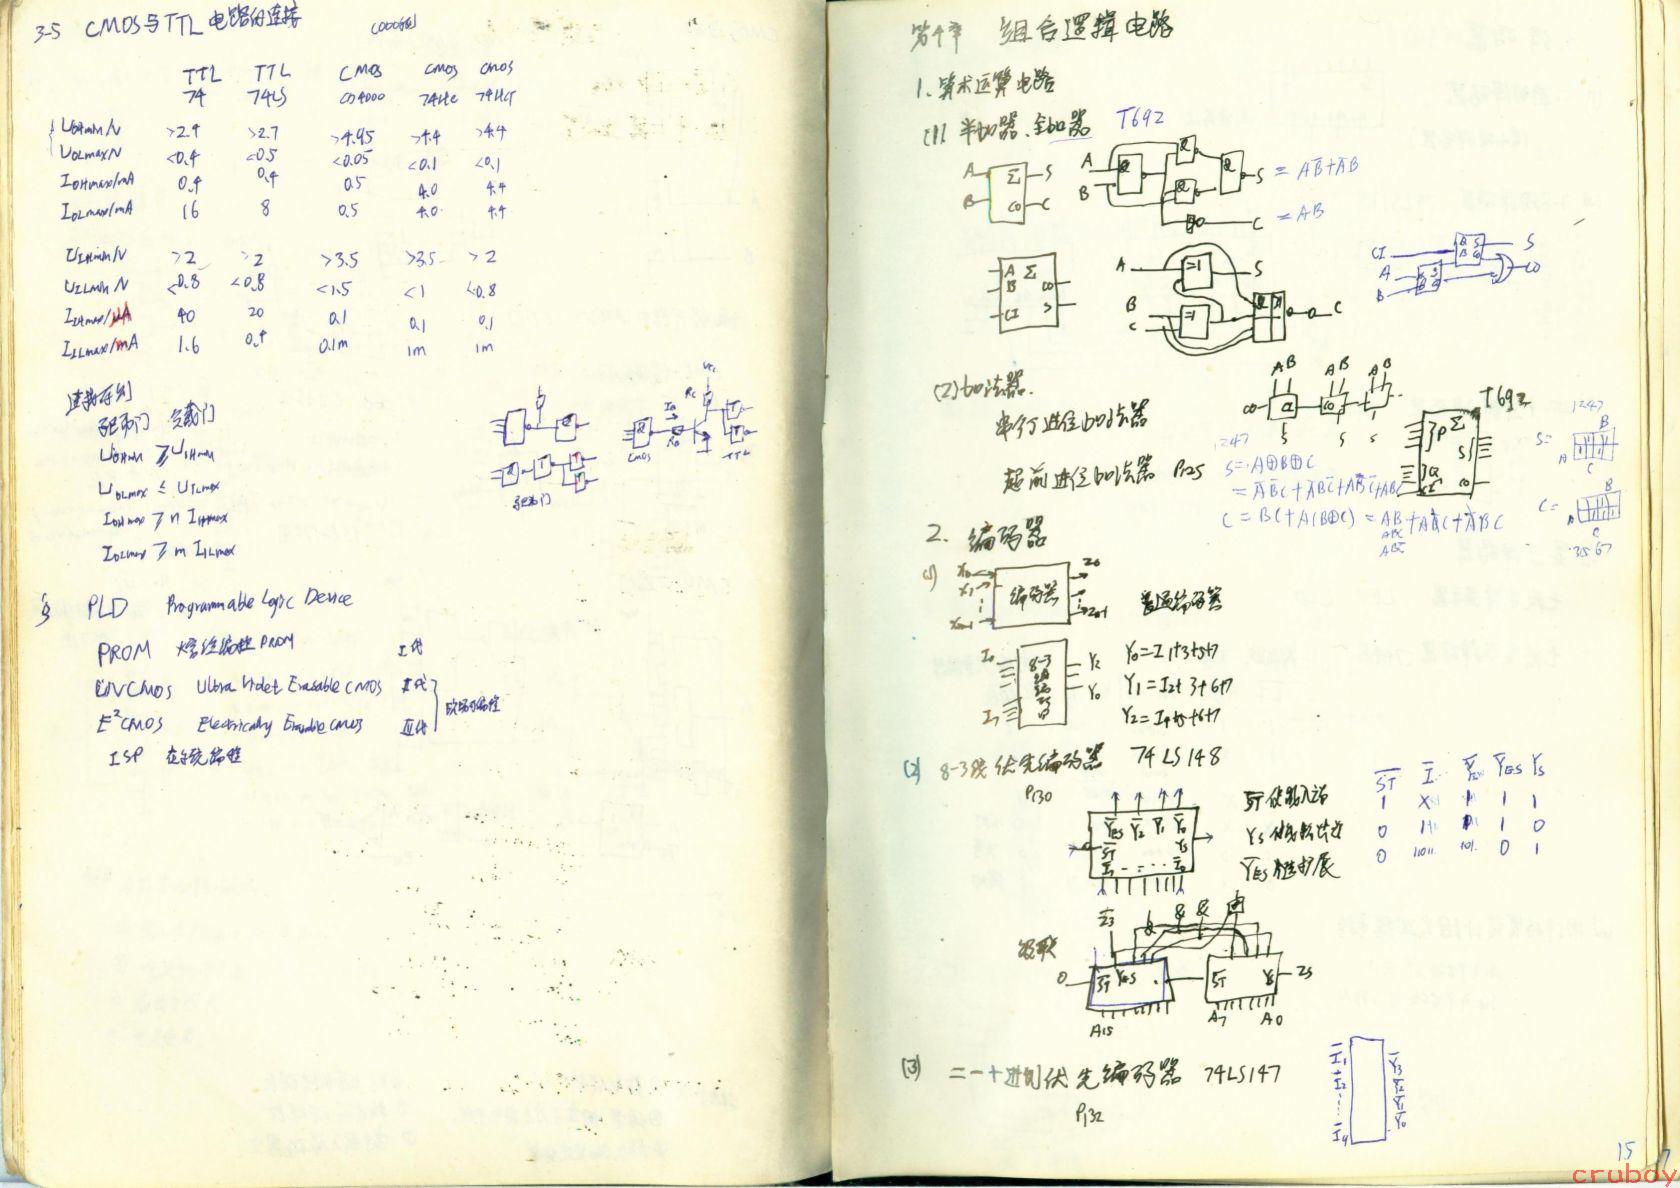 3-5 CMOS与TTL电路的连接
TTL TTL CMOS CMOS CMOS
74 74LS CD4000 74HC 74HCT
UOHmin/V >2.4 >2.7 >4.95 >4.4 >4.4
UOLmax/V <0.4 <0.5 <0.05 <0.1 <0.1
IOHmax/mA 0.4 0.4 0.5 4.0 4.4
IOLmax/mA 16 8 0.5 4.0 4.4
UIHmin/V >2 >2 >3.5 >3.5 >2
UILmin/V <0.8 <0.8 <1.5 <1 <0.8
IIHmax/μA 40 20 0.1 0.1 0.1
IILmax/mA 1.6 0.4 0.1m 1m 1m
驱动门 负载门
UOHmin ≥ UIHmin
UOLmax ≤ UILmax
IOHmax ≥ n IIHmax
IOLmax ≥ m IILmax
CMOS
Rc
TTL
驱动门
PLD Programmable Logic Device
PROM 熔丝编程PROM I代
UVCMOS Ultra Violet Erasable CMOS II代
E²CMOS Electrically Erasable CMOS III代
ISP 在系统编程
第4章 组合逻辑电路
1. 算术运算电路
(1). 半加器、全加器 T692
A B Σ CO S C
A B S = AB̄+ĀB
C = AB
A B CI Σ CO S
A B C >=1 >=1 S C
CI A B S CO
(2) 加法器.
串行进位加法器
超前进位加法器 P125
T692
P Σ Q S CI CO
1247
S = A⊕B⊕C
C = BC+A(B⊕C)
1247
S=
C=
3567
2. 编码器
(1) X0 X1 Xm-1 编码器 Z0 Zn-1 普通编码器
I0 I7 8-3 Y2 Y0
Y0=I1+3+5+7
Y1=I2+3+6+7
Y2=I4+5+6+7
(2) 8-3线优先编码器 74LS148
P130
S̄T̄ 使能输入端
YS 使能输出端
ȲES 优先扩展
S̄T̄ Ī Ȳ ȲES YS
1 X 1 1 1
0 1 1 1 0
0 0 1
级联
Z3
0 S̄T̄ YES S̄T̄ YS ZS
A15 A7 A0
(3) 二-十进制优先编码器 74LS147
P132
Ī1 Ī2 Ī9 Ȳ3 Ȳ2 Ȳ1 Ȳ0
15
cruboy